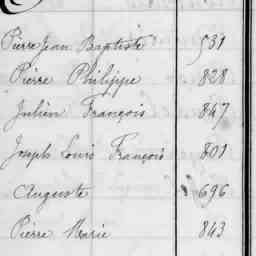 Pierre Jean Baptiste 531
Pierre Philippe 828
Julien François 847
Joseph Louis François 801
Auguste 696
Pierre Marie 843